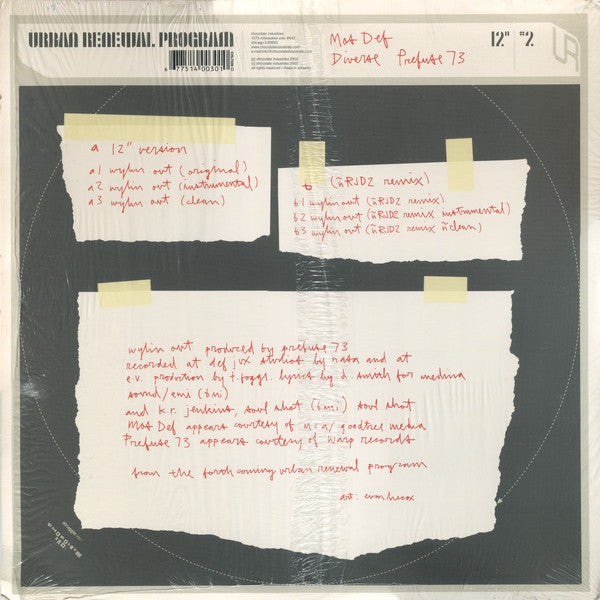 URBAN RENEWAL PROGRAM
chocolate industries
chicago il 60622
www.chocolateindustries.com
(p) chocolate industries 2002
(c) chocolate industries 2002
all rights reserved / made in canada
6 77514 00301 0
Mos Def
Diverse Prefuse 73
12" #2
a 12" version
a1 wylin out (original)
a2 wylin out (instrumental)
a3 wylin out (clean)
b (ñRJD2 remix)
b1 wylin out (ñRJD2 remix)
b2 wylin out (ñRJD2 remix instrumental)
b3 wylin out (ñRJD2 remix ñclean)
wylin out produced by prefuse 73
recorded at def jux studios by nasa and at
e.v. production by t. foggs. lyrics by d. smith for medina
sound/emi (bmi)
and k.r. jenkins, soul shot (bmi) soul shot
Mos Def appears courtesy of mca/goodtree media
Prefuse 73 appears courtesy of warp records
from the forthcoming urban renewal program
art: evan hecox